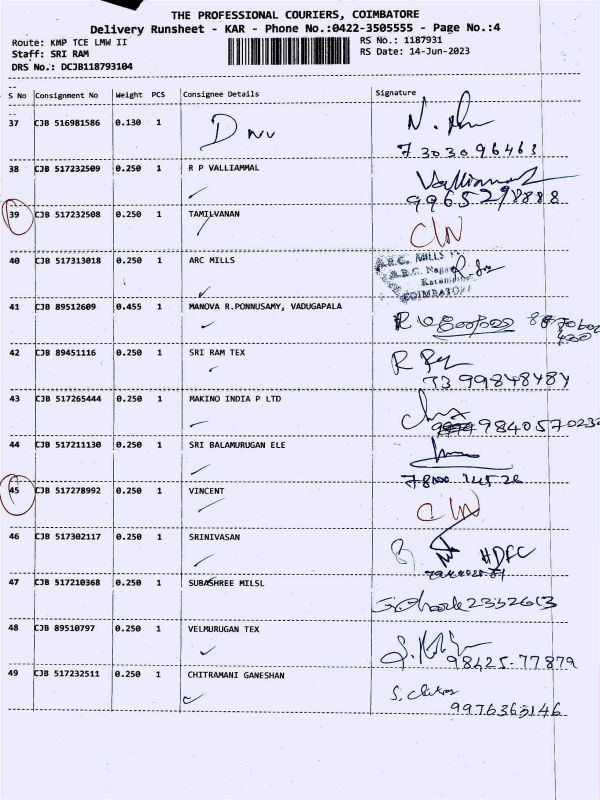 THE PROFESSIONAL COURIERS, COIMBATORE
Delivery Runsheet - KAR - Phone No.:0422-3505555 - Page No.:4
Route: KMP TCE LMW II RS No.: 1187931
Staff: SRI RAM RS Date: 14-Jun-2023
DRS No.: DCJB118793104
S No Consignment No Weight PCS Consignee Details Signature
37 CJB 516981586 0.130 1
7303096463
38 CJB 517232509 0.250 1 R P VALLIAMMAL
39 CJB 517232508 0.250 1 TAMILVANAN
40 CJB 517313018 0.250 1 ARC MILLS
COIMBATORE
41 CJB 89512609 0.455 1 MANOVA R.PONNUSAMY, VADUGAPALA
42 CJB 89451116 0.250 1 SRI RAM TEX
43 CJB 517265444 0.250 1 MAKINO INDIA P LTD
44 CJB 517211130 0.250 1 SRI BALAMURUGAN ELE
45 CJB 517278992 0.250 1 VINCENT
46 CJB 517302117 0.250 1 SRINIVASAN
HDFC
47 CJB 517210368 0.250 1 SUBASHREE MILSL
48 CJB 89510797 0.250 1 VELMURUGAN TEX
98425-77879
49 CJB 517232511 0.250 1 CHITRAMANI GANESHAN
9976363146